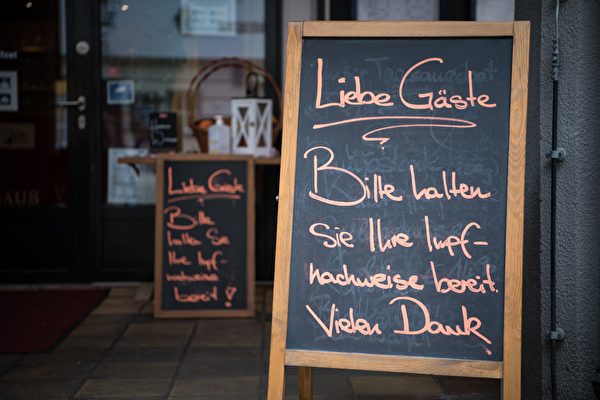 Liebe Gäste
Bitte halten
Sie Ihre Impf-
nachweise bereit.
Vielen Dank
Liebe Gäste
Bitte
halten Sie
Ihre Impf-
nachweise
bereit!
HAUS